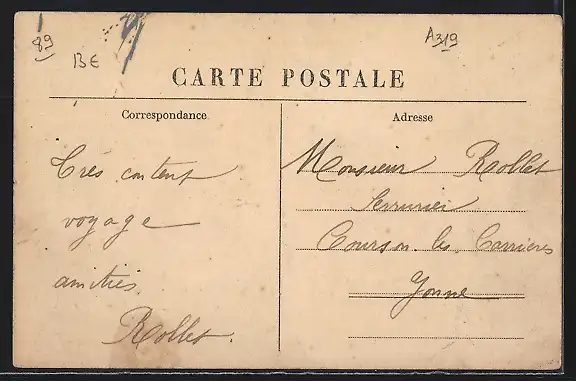 89
BE
A319
CARTE POSTALE
Correspondance
Adresse
Très content
voyage
amitiés
Rollet.
Monsieur Rollet
Serrurier
Courson les Carrières
Yonne